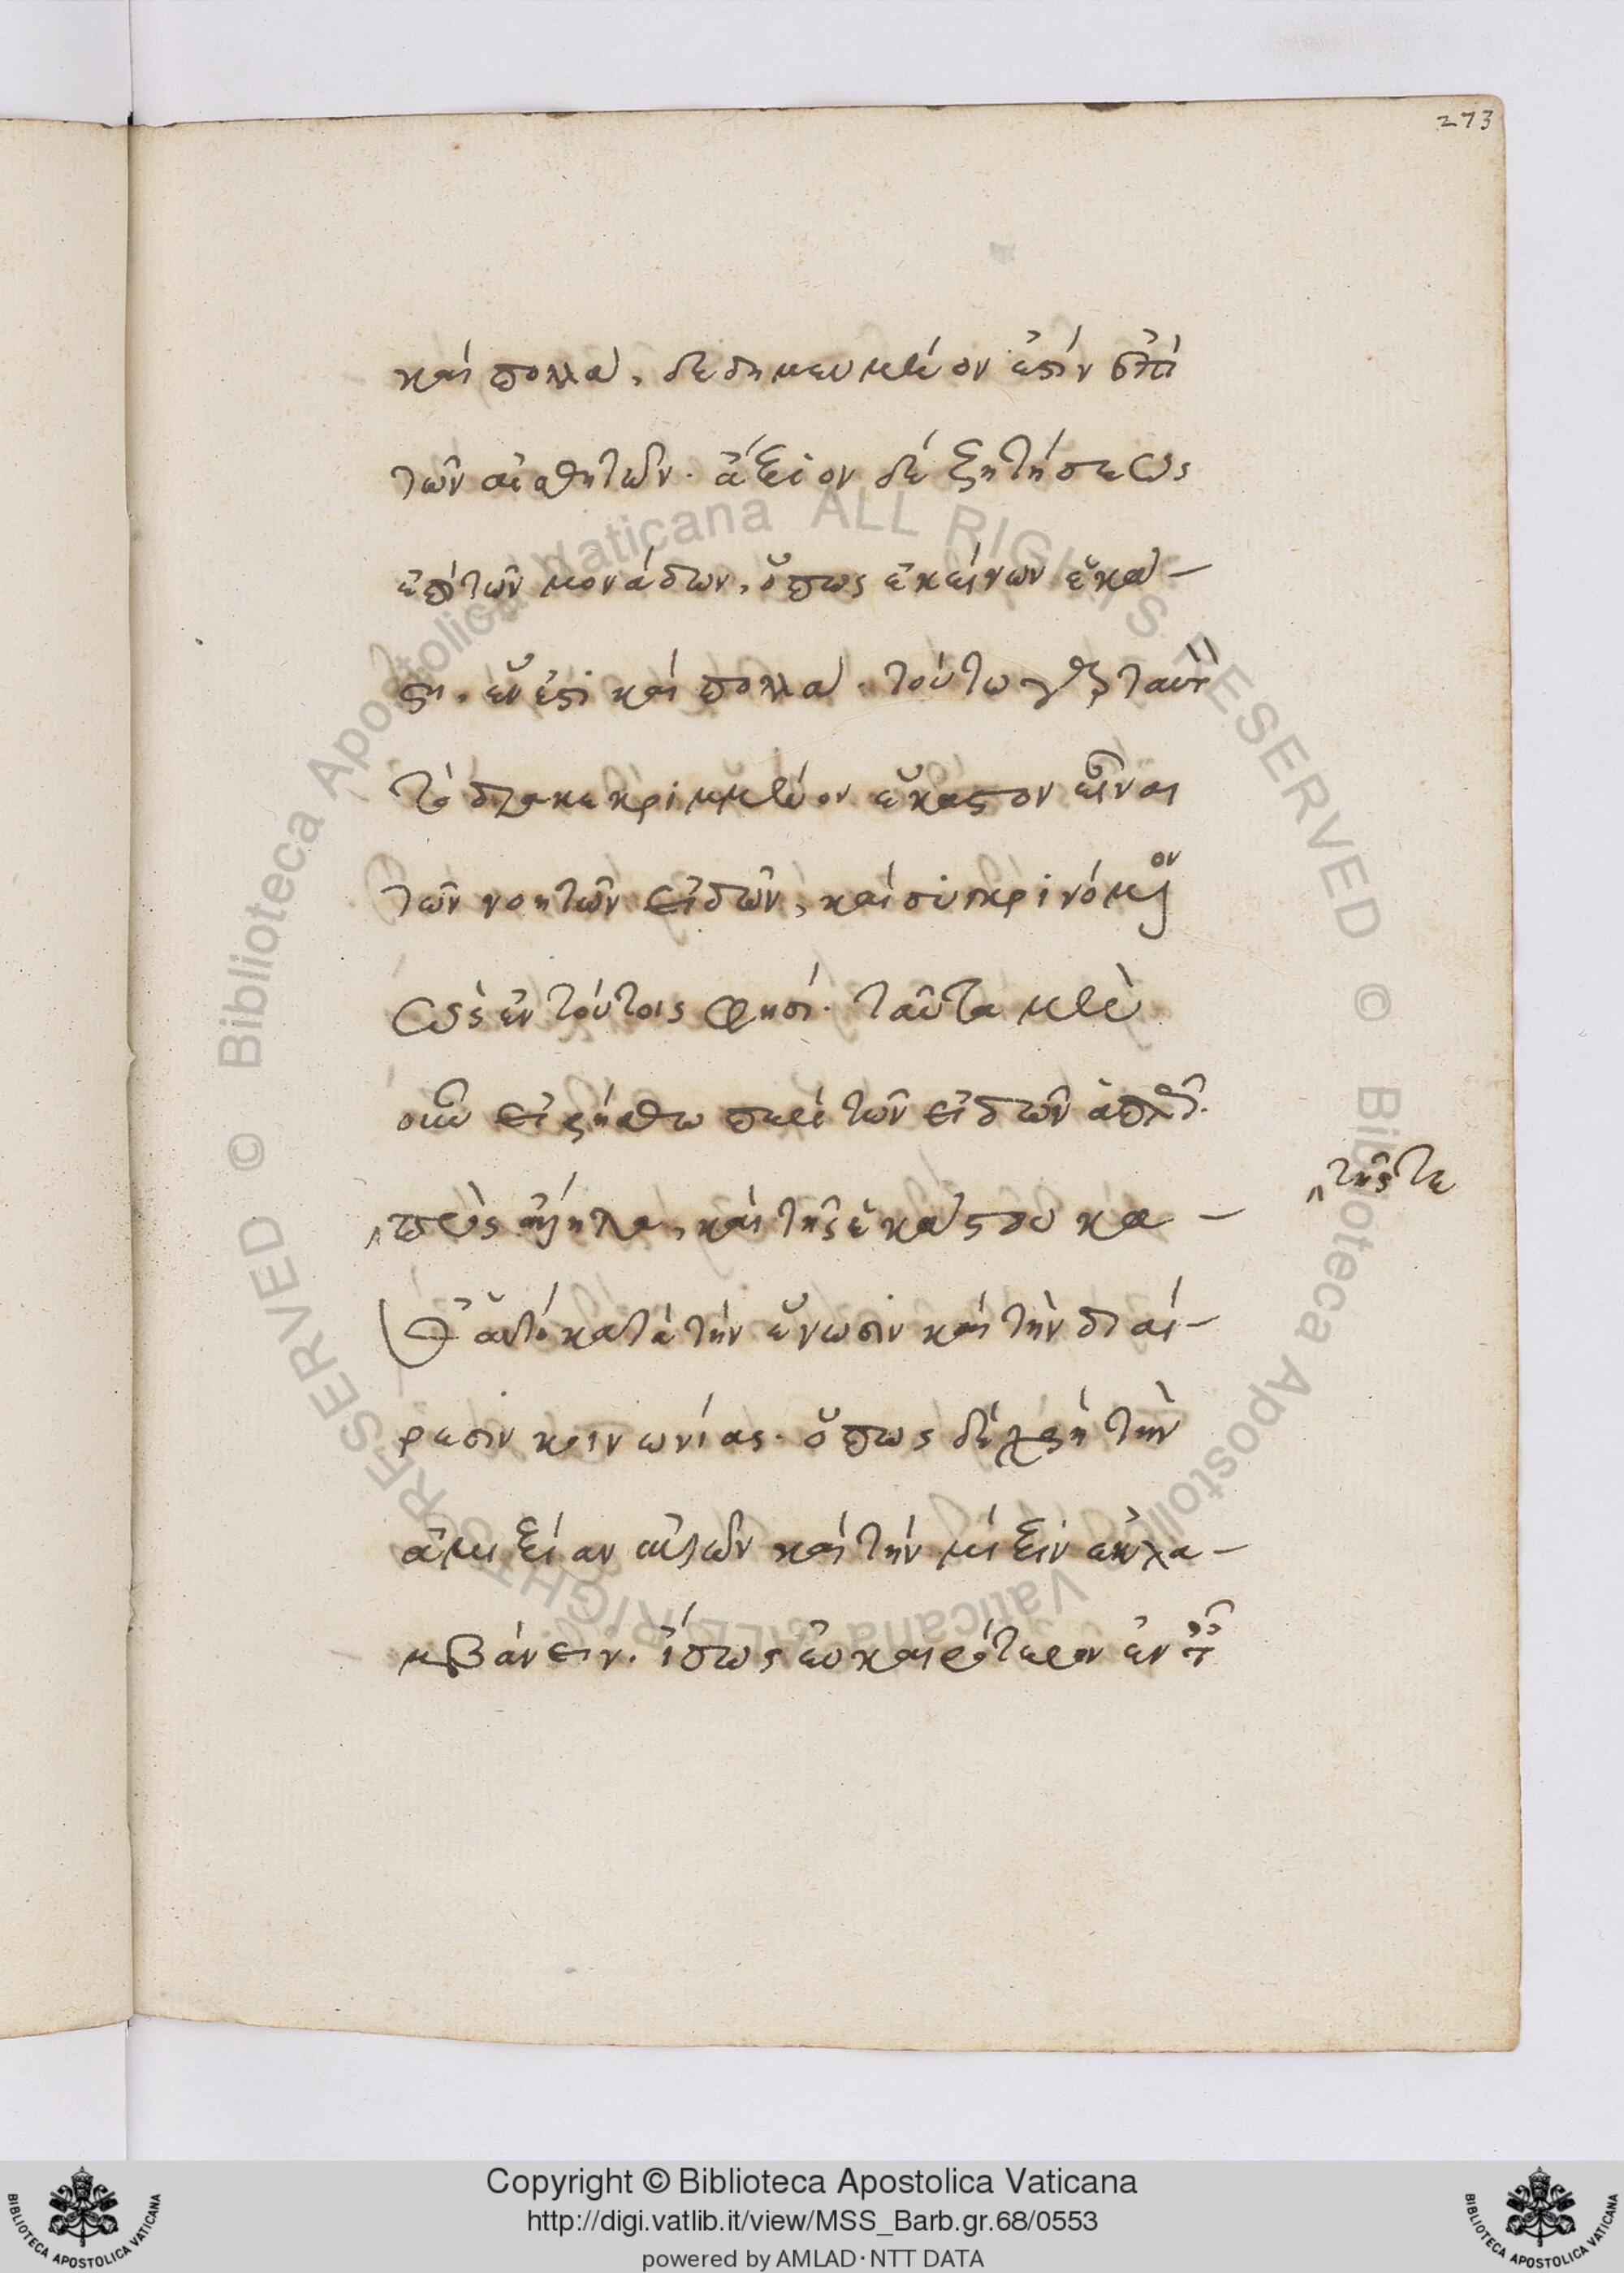 273
καὶ πολλὰ, δεδημευμένον ἐστὶν ἐπὶ
τῶν αἰσθητῶν· ἄξιον δὲ ζητήσεως
ἐπὶ τῶν μονάδων, ὅπως ἐκείνων ἑκά-
στη, ἕν ἐστι καὶ πολλά· τούτω γὰρ ταυτὸν
τὸ διακεκριμμένον ἕκαστον εἶναι
τῶν νοητῶν εἰδῶν, καὶ συγκρινόμενον
ὡς ἐν τούτοις φησί· ταῦτα μὲν
οὖν εἰρήσθω περὶ τῶν εἰδῶν ἁπλῶς·
πρὸς ἄλληλα, καὶ τῆς ἑκάστου κα-
τῆς τε
θ' αὑτὸ κατὰ τὴν ἕνωσιν καὶ τὴν διαί-
ρεσιν κοινωνίας· ὅπως δὲ χρὴ τὴν
ἀμιξίαν αὐτῶν καὶ τὴν μίξιν ἐκλα-
μβάνειν. ἴσως εὐκαιρότερον ἐν τοῖς
Copyright © Biblioteca Apostolica Vaticana
http://digi.vatlib.it/view/MSS_Barb.gr.68/0553
powered by AMLAD·NTT DATA
BIBLIOTECA APOSTOLICA VATICANA
BIBLIOTECA APOSTOLICA VATICANA
© Biblioteca Apostolica Vaticana ALL RIGHTS RESERVED
© Biblioteca Apostolica Vaticana ALL RIGHTS RESERVED